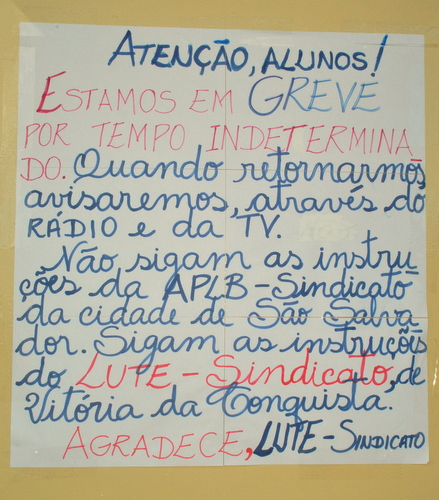 ATENÇÃO, ALUNOS!
ESTAMOS EM GREVE
POR TEMPO INDETERMINA
DO. Quando retornarmos,
avisaremos, através do
RÁDIO e da TV.
Não sigam as instru
ções da APLB-Sindicato
da cidade de São Salva
dor. Sigam as instruções
do LUTE-Sindicato, de
Vitória da Conquista.
AGRADECE, LUTE-SINDICATO